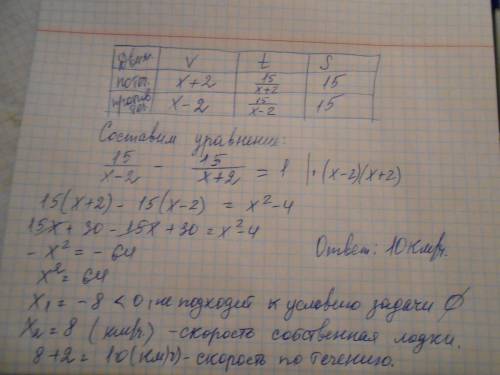 Движ. V t S
по теч. x+2 15/(x+2) 15
против теч. x-2 15/(x-2) 15
Составим уравнение:
15/(x-2) - 15/(x+2) = 1 |·(x-2)(x+2)
15(x+2) - 15(x-2) = x²-4
15x+30-15x+30=x²-4
-x²=-64
x²=64
Ответ: 10 км/ч.
x₁=-8<0, не подходит к условию задачи ∅
x₂=8 (км/ч) - скорость собственная лодки.
8+2= 10(км/ч)-скорость по течению.